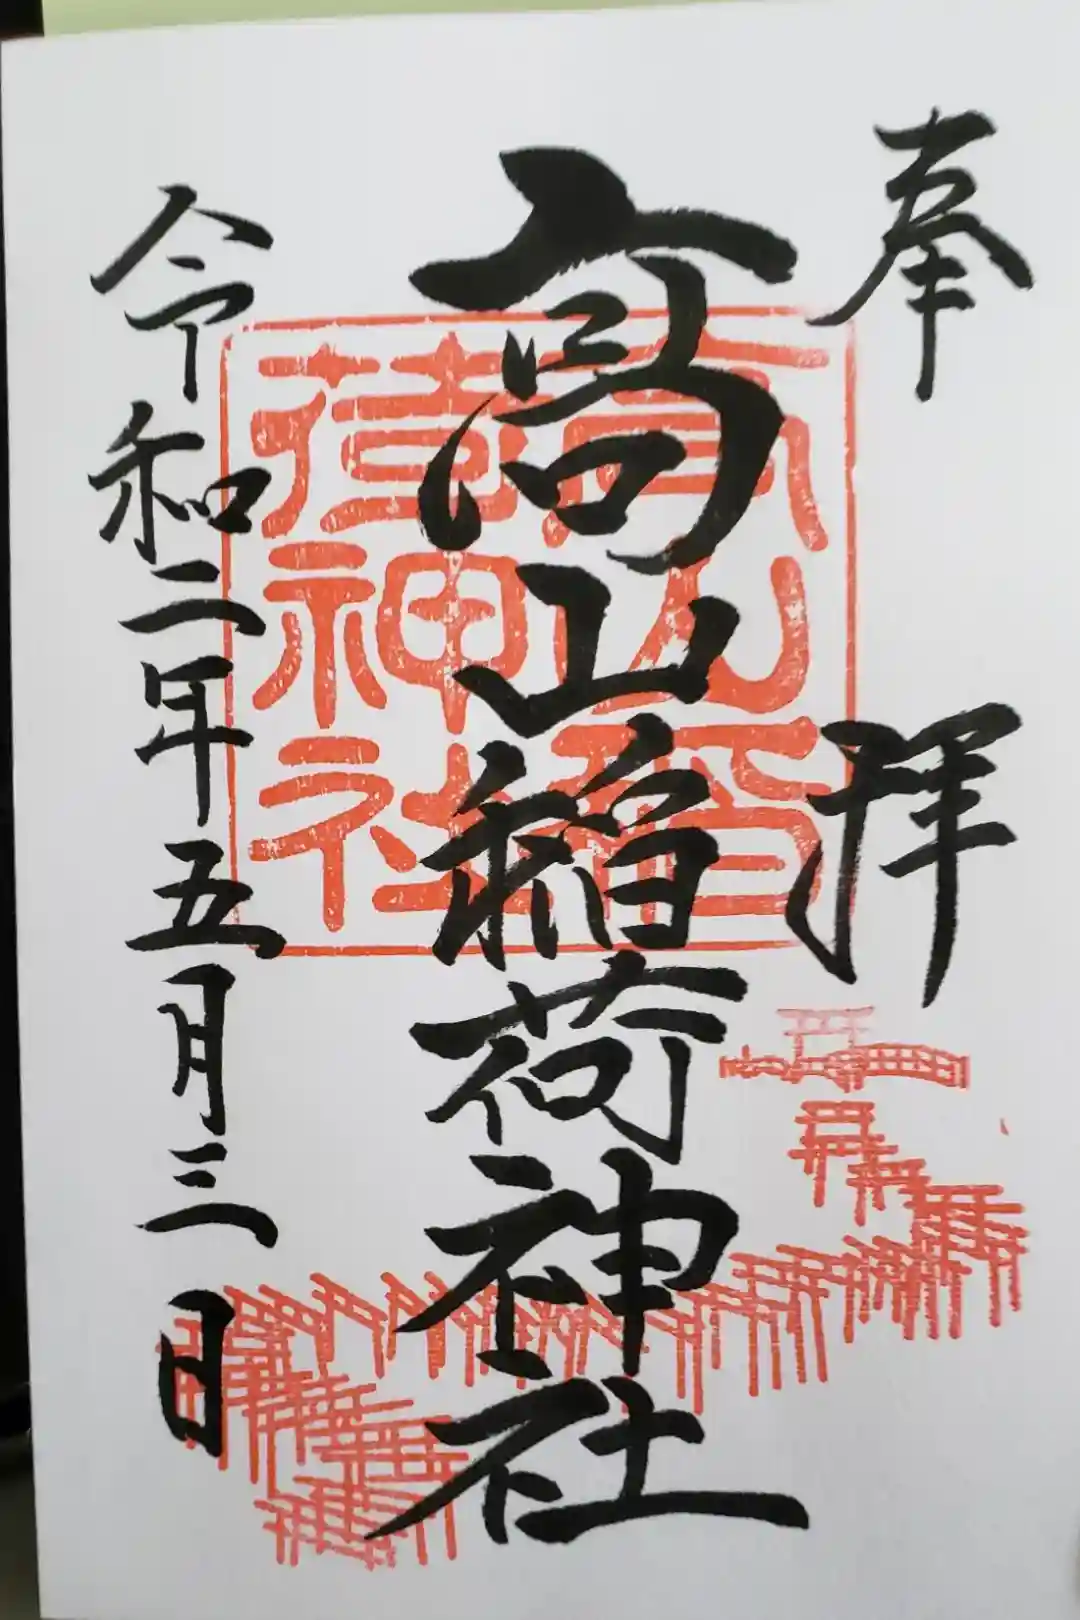 奉拝
高山稲荷神社
令和二年五月三日
高山稲
荷神社